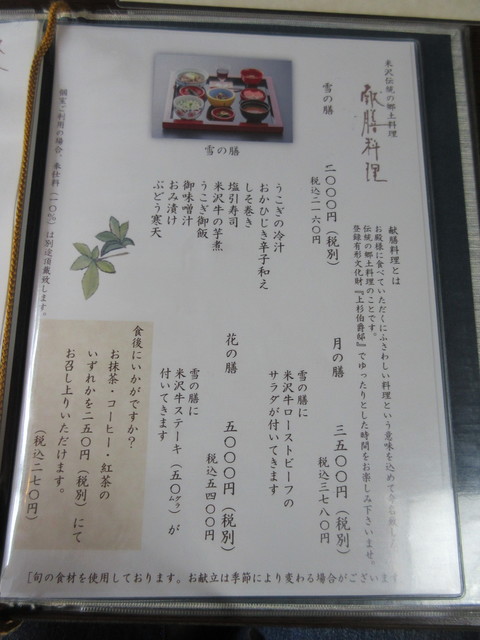 米沢伝統の郷土料理
献膳料理
献膳料理とは
お殿様に食べていただくにふさわしい料理という意味を込めて
伝統の郷土料理のことです。
登録有形文化財『上杉伯爵邸』でゆったりとした時間をお楽しみ下さいませ。
雪の膳
二〇〇〇円（税別）
税込二一六〇円
うこぎの冷汁
おかひじき辛子和え
しそ巻き
塩引寿司
米沢牛の芋煮
うこぎ御飯
御味噌汁
おみ漬け
ぶどう寒天
雪の膳
月の膳
三五〇〇円（税別）
税込三七八〇円
雪の膳に
米沢牛ローストビーフの
サラダが付いてきます
花の膳
五〇〇〇円（税別）
税込五四〇〇円
雪の膳に
米沢牛ステーキ（五〇グラム）が
付いてきます
食後にいかがですか？
お抹茶・コーヒー・紅茶の
いずれかを二五〇円（税別）にて
お召し上りいただけます。
（税込二七〇円）
個室ご利用の場合、奉仕料（一〇%）は別途頂戴致します。
［旬の食材を使用しております。お献立は季節により変わる場合がございます